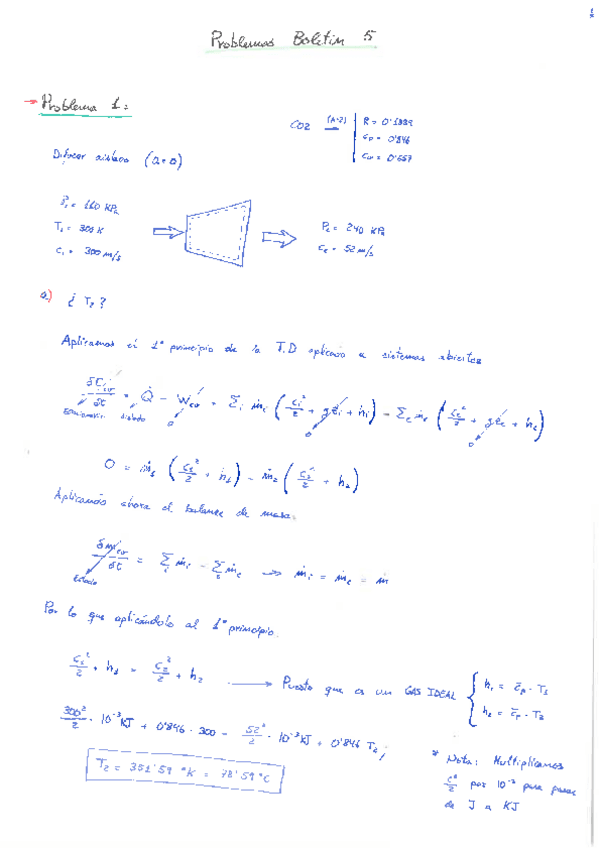 Problemas Boletín 5
→ Problema 1:
CO2 (A-2) → R = 0'1889
cp = 0'846
cv = 0'657
Difusor aislado (Q=0)
P1 = 110 KPa
T1 = 300 K
c1 = 300 m/s
P2 = 240 KPa
c2 = 52 m/s
a) ¿T2?
Aplicamos el 1º principio de la T.D aplicado a sistemas abiertos
δEcv/δt = Q̇ - Ẇcv + Σi ṁi (ci²/2 + gzi + hi) - Σe ṁe (ce²/2 + gze + he)
aislado 0 0 0
0 = ṁ1 (c1²/2 + h1) - ṁ2 (c2²/2 + h2)
Aplicando ahora el balance de masa:
δmcv/δt = Σi ṁi - Σe ṁe → ṁi = ṁe = ṁ
Por lo que aplicándolo al 1º principio.
c1²/2 + h1 = c2²/2 + h2 → Puesto que es un GAS IDEAL { h1 = c̄p · T1
h2 = c̄p · T2
300²/2 · 10⁻³ KJ + 0'846 · 300 = 52²/2 · 10⁻³ KJ + 0'846 T2,
T2 = 351'59 °K = 78'59 °C
* Nota: Multiplicamos
c²/2 por 10⁻³ para pasar
de J a KJ